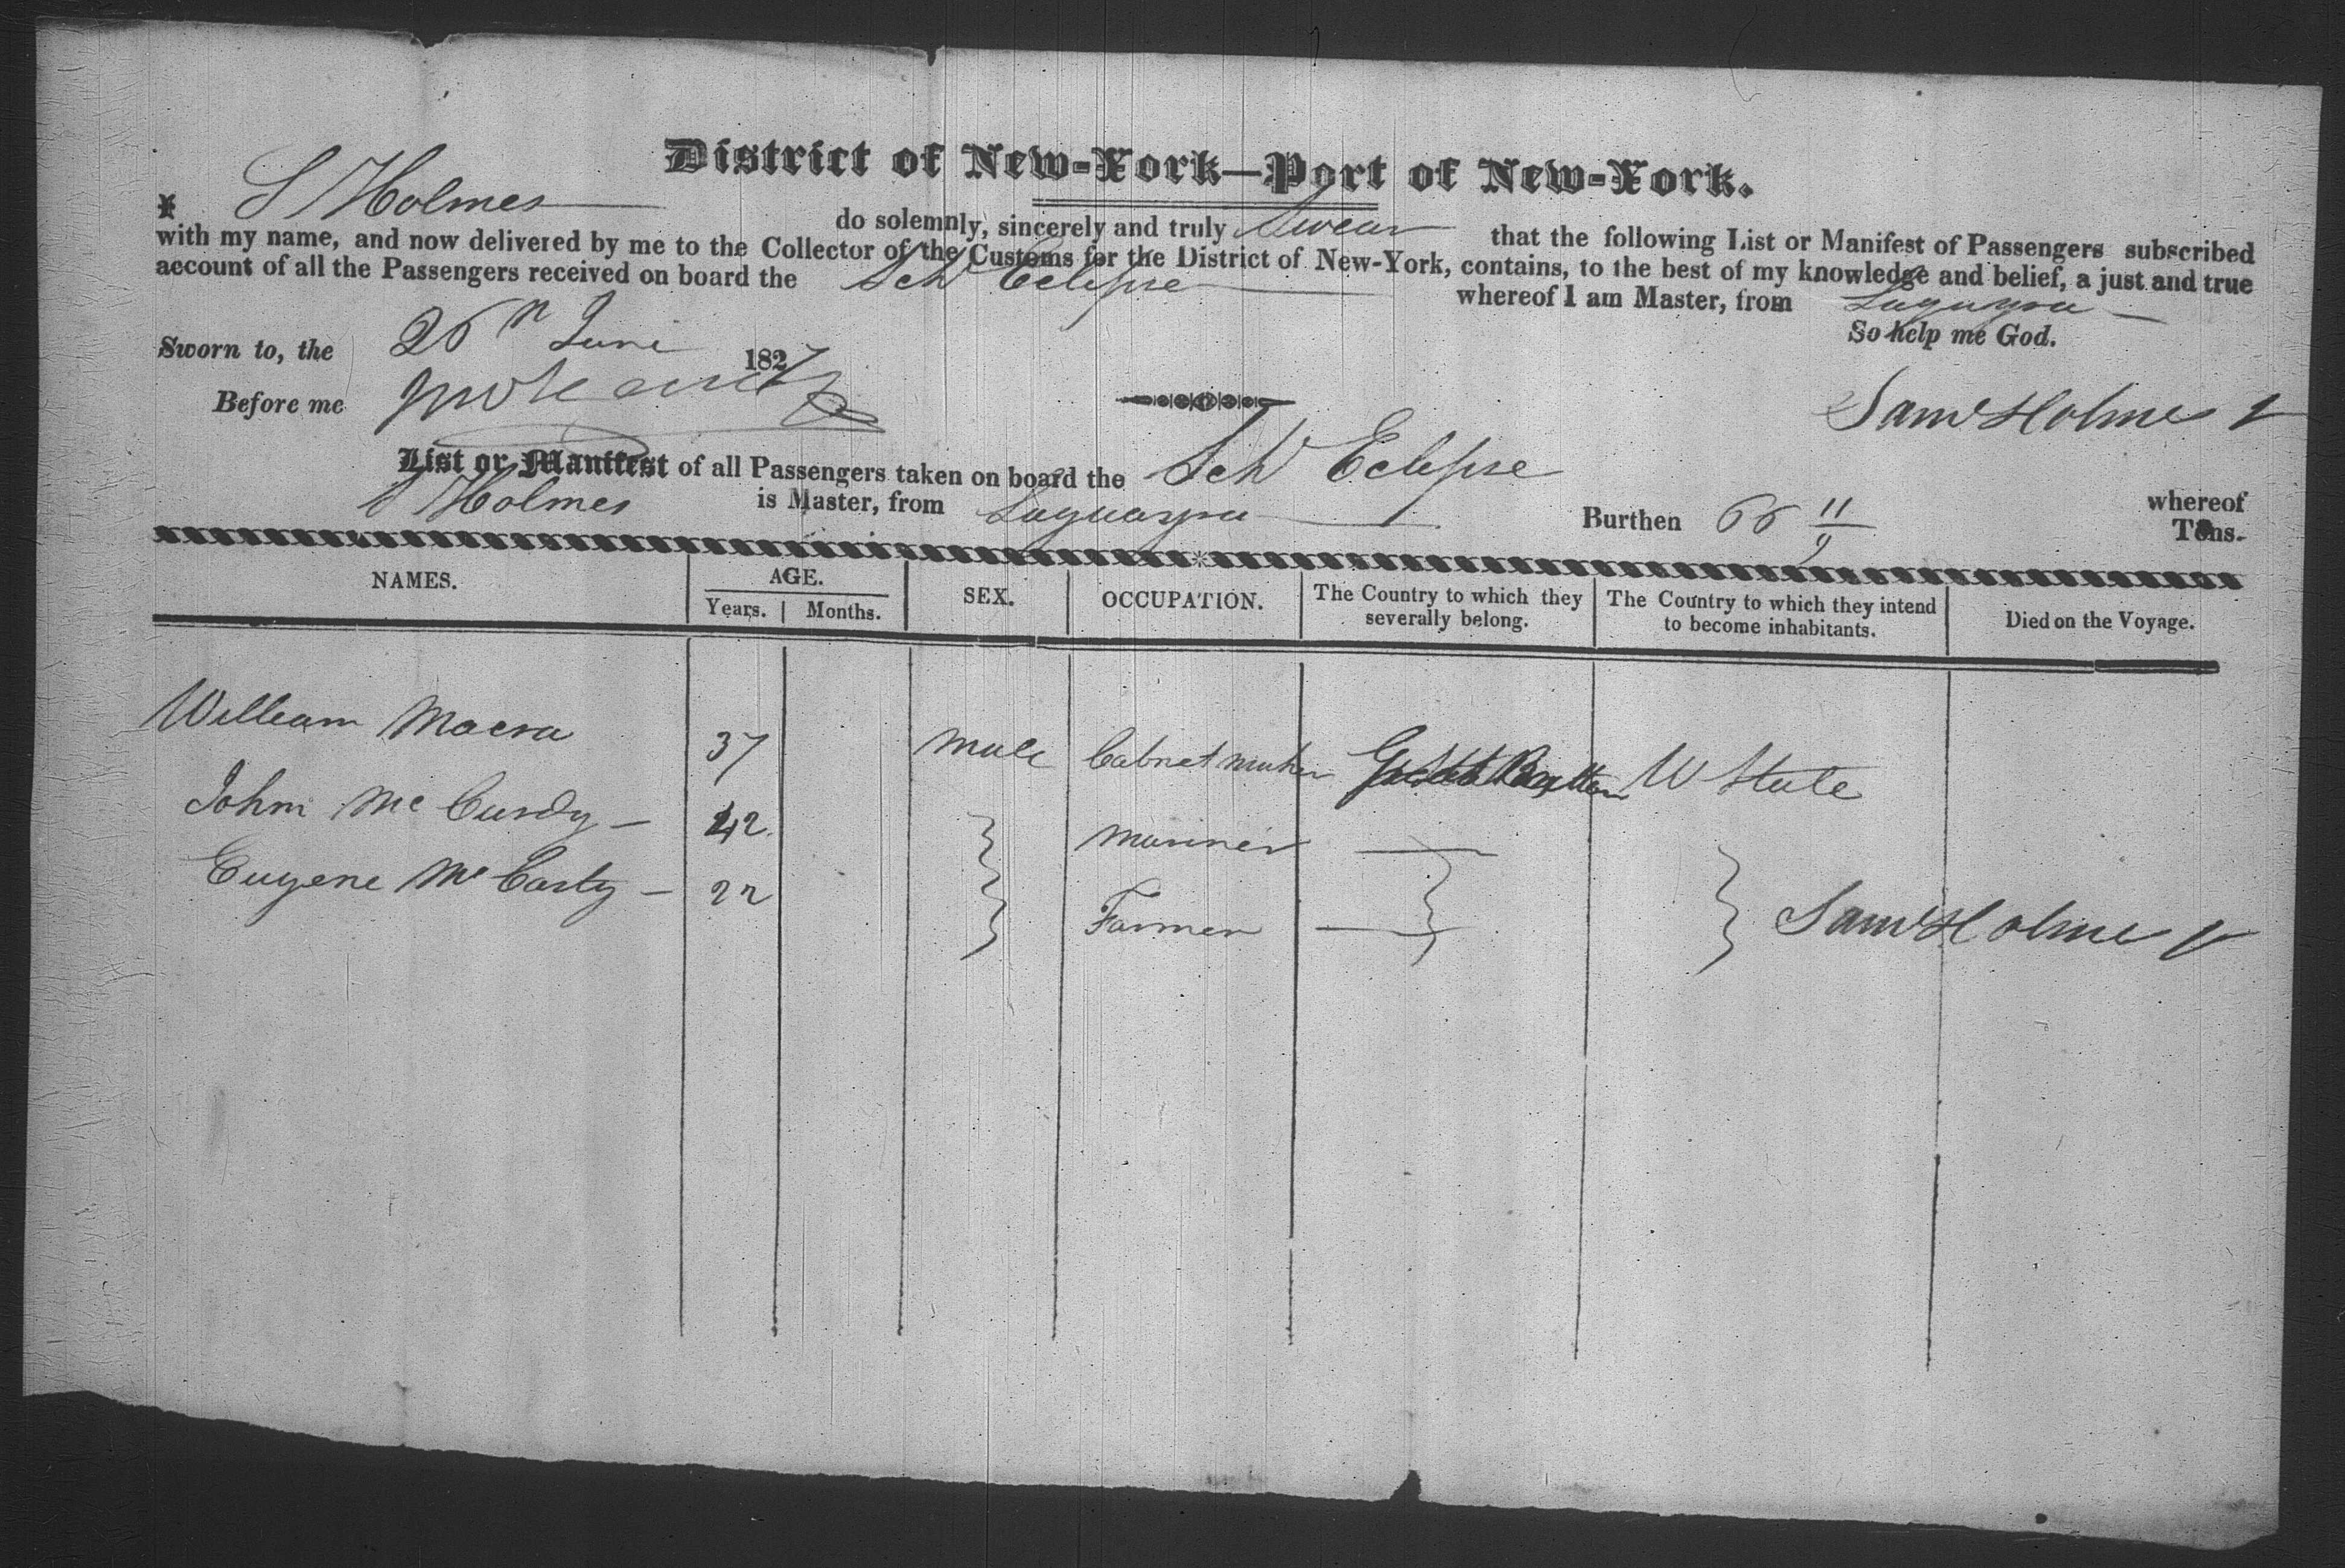 District of New-York—Port of New-York.
I S Holmes do solemnly, sincerely and truly Swear that the following List or Manifest of Passengers subscribed
with my name, and now delivered by me to the Collector of the Customs for the District of New-York, contains, to the best of my knowledge and belief, a just and true
account of all the Passengers received on board the Sch Eclipse whereof I am Master, from Laguayra
So help me God.
Sworn to, the 26 June 1827
Before me
Saml Holmes
List or Manifest of all Passengers taken on board the Sch Eclipse whereof
S Holmes is Master, from Laguayra Burthen 66 11/9 Tons.
NAMES. AGE. SEX. OCCUPATION. The Country to which they severally belong. The Country to which they intend to become inhabitants. Died on the Voyage.
Years. Months.
William Macra 37 male Cabnet maker U State
John McCurdy 42 mariner
Eugene McCarty 22 Farmer
Saml Holmes